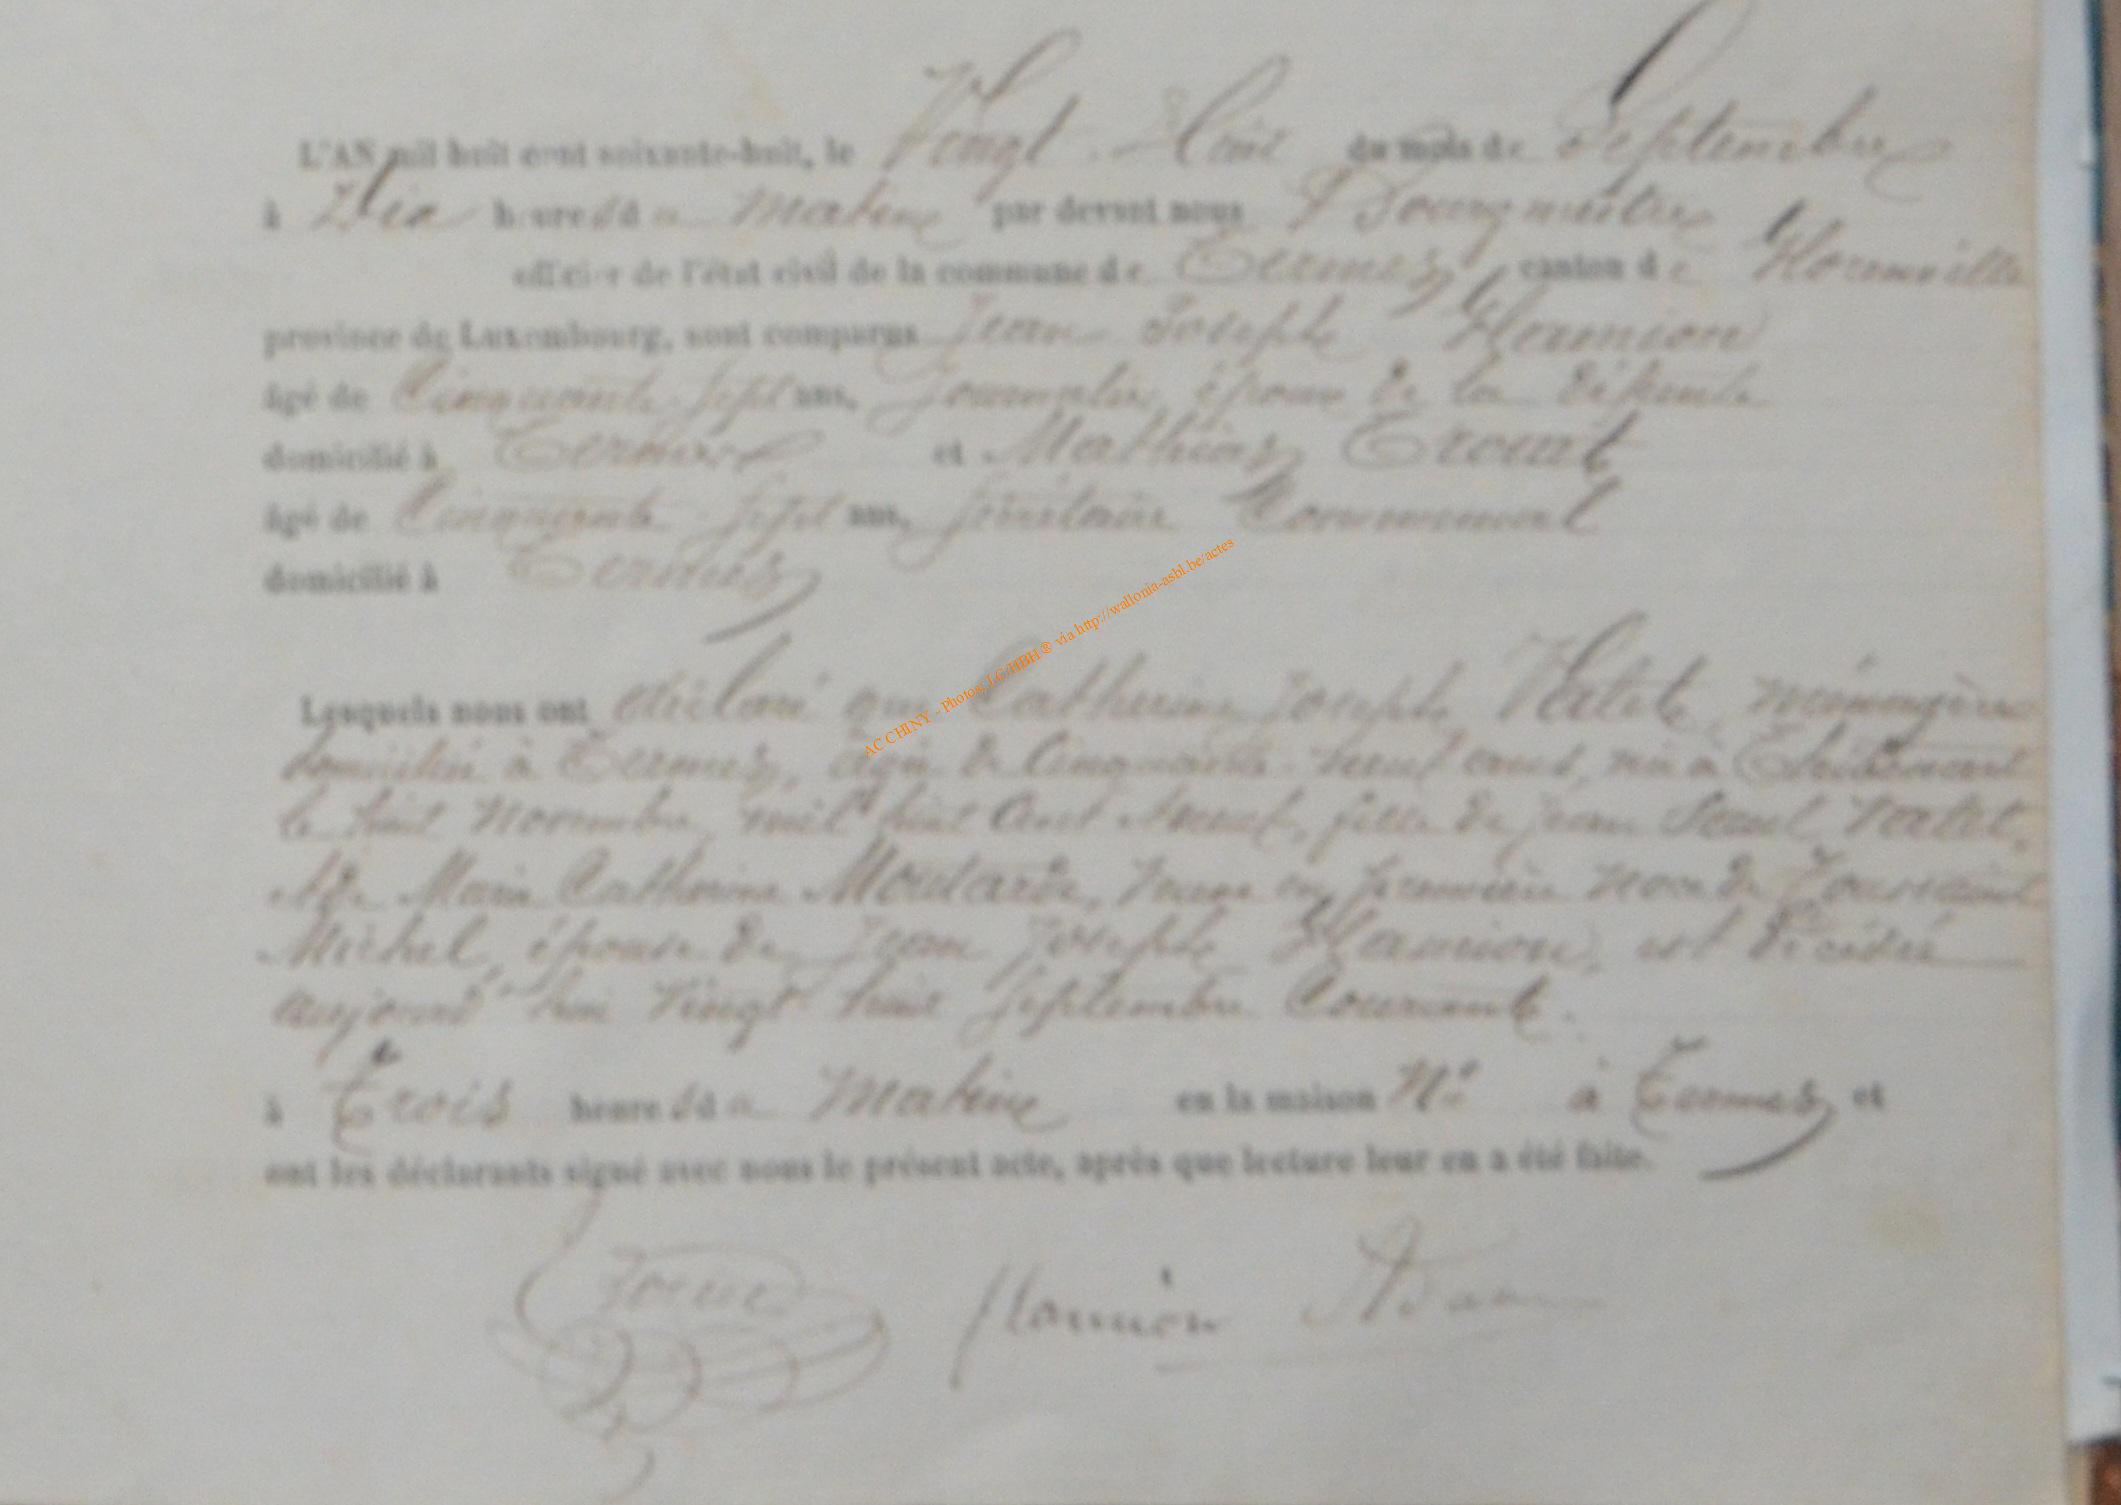 L'AN mil huit cent soixante-huit, le Vingt-huit du mois de Septembre
à Dix heures du matin par devant nous Bourgmestre
officier de l'état civil de la commune de Termes, canton de Florenville
province de Luxembourg, sont comparus Jean Joseph Hamion
âgé de Cinquante-sept ans, Journalier, époux de la défunte
domicilié à Termes et Mathias
âgé de Cinquante sept ans, secrétaire Communal
domicilié à Termes
Lesquels nous ont déclaré que Catherine Joseph ménagère
domiciliée à Termes, âgée de Cinquante-neuf ans, née à
le huit Novembre mil huit Cent Neuf, fille de Jean
et de Marie Catherine Moutarde, veuve en première noce de Toussaint
Michel, épouse de Jean Joseph Hamion, est décédée
aujourd'hui vingt huit Septembre Courant.
à Trois heures du Matin en la maison N° à Termes et
ont les déclarants signé avec nous le présent acte, après que lecture leur en a été faite.
Hamion
AC CHINY - Photos LC/HBH ® via http://wallonia-asbl.be/actes